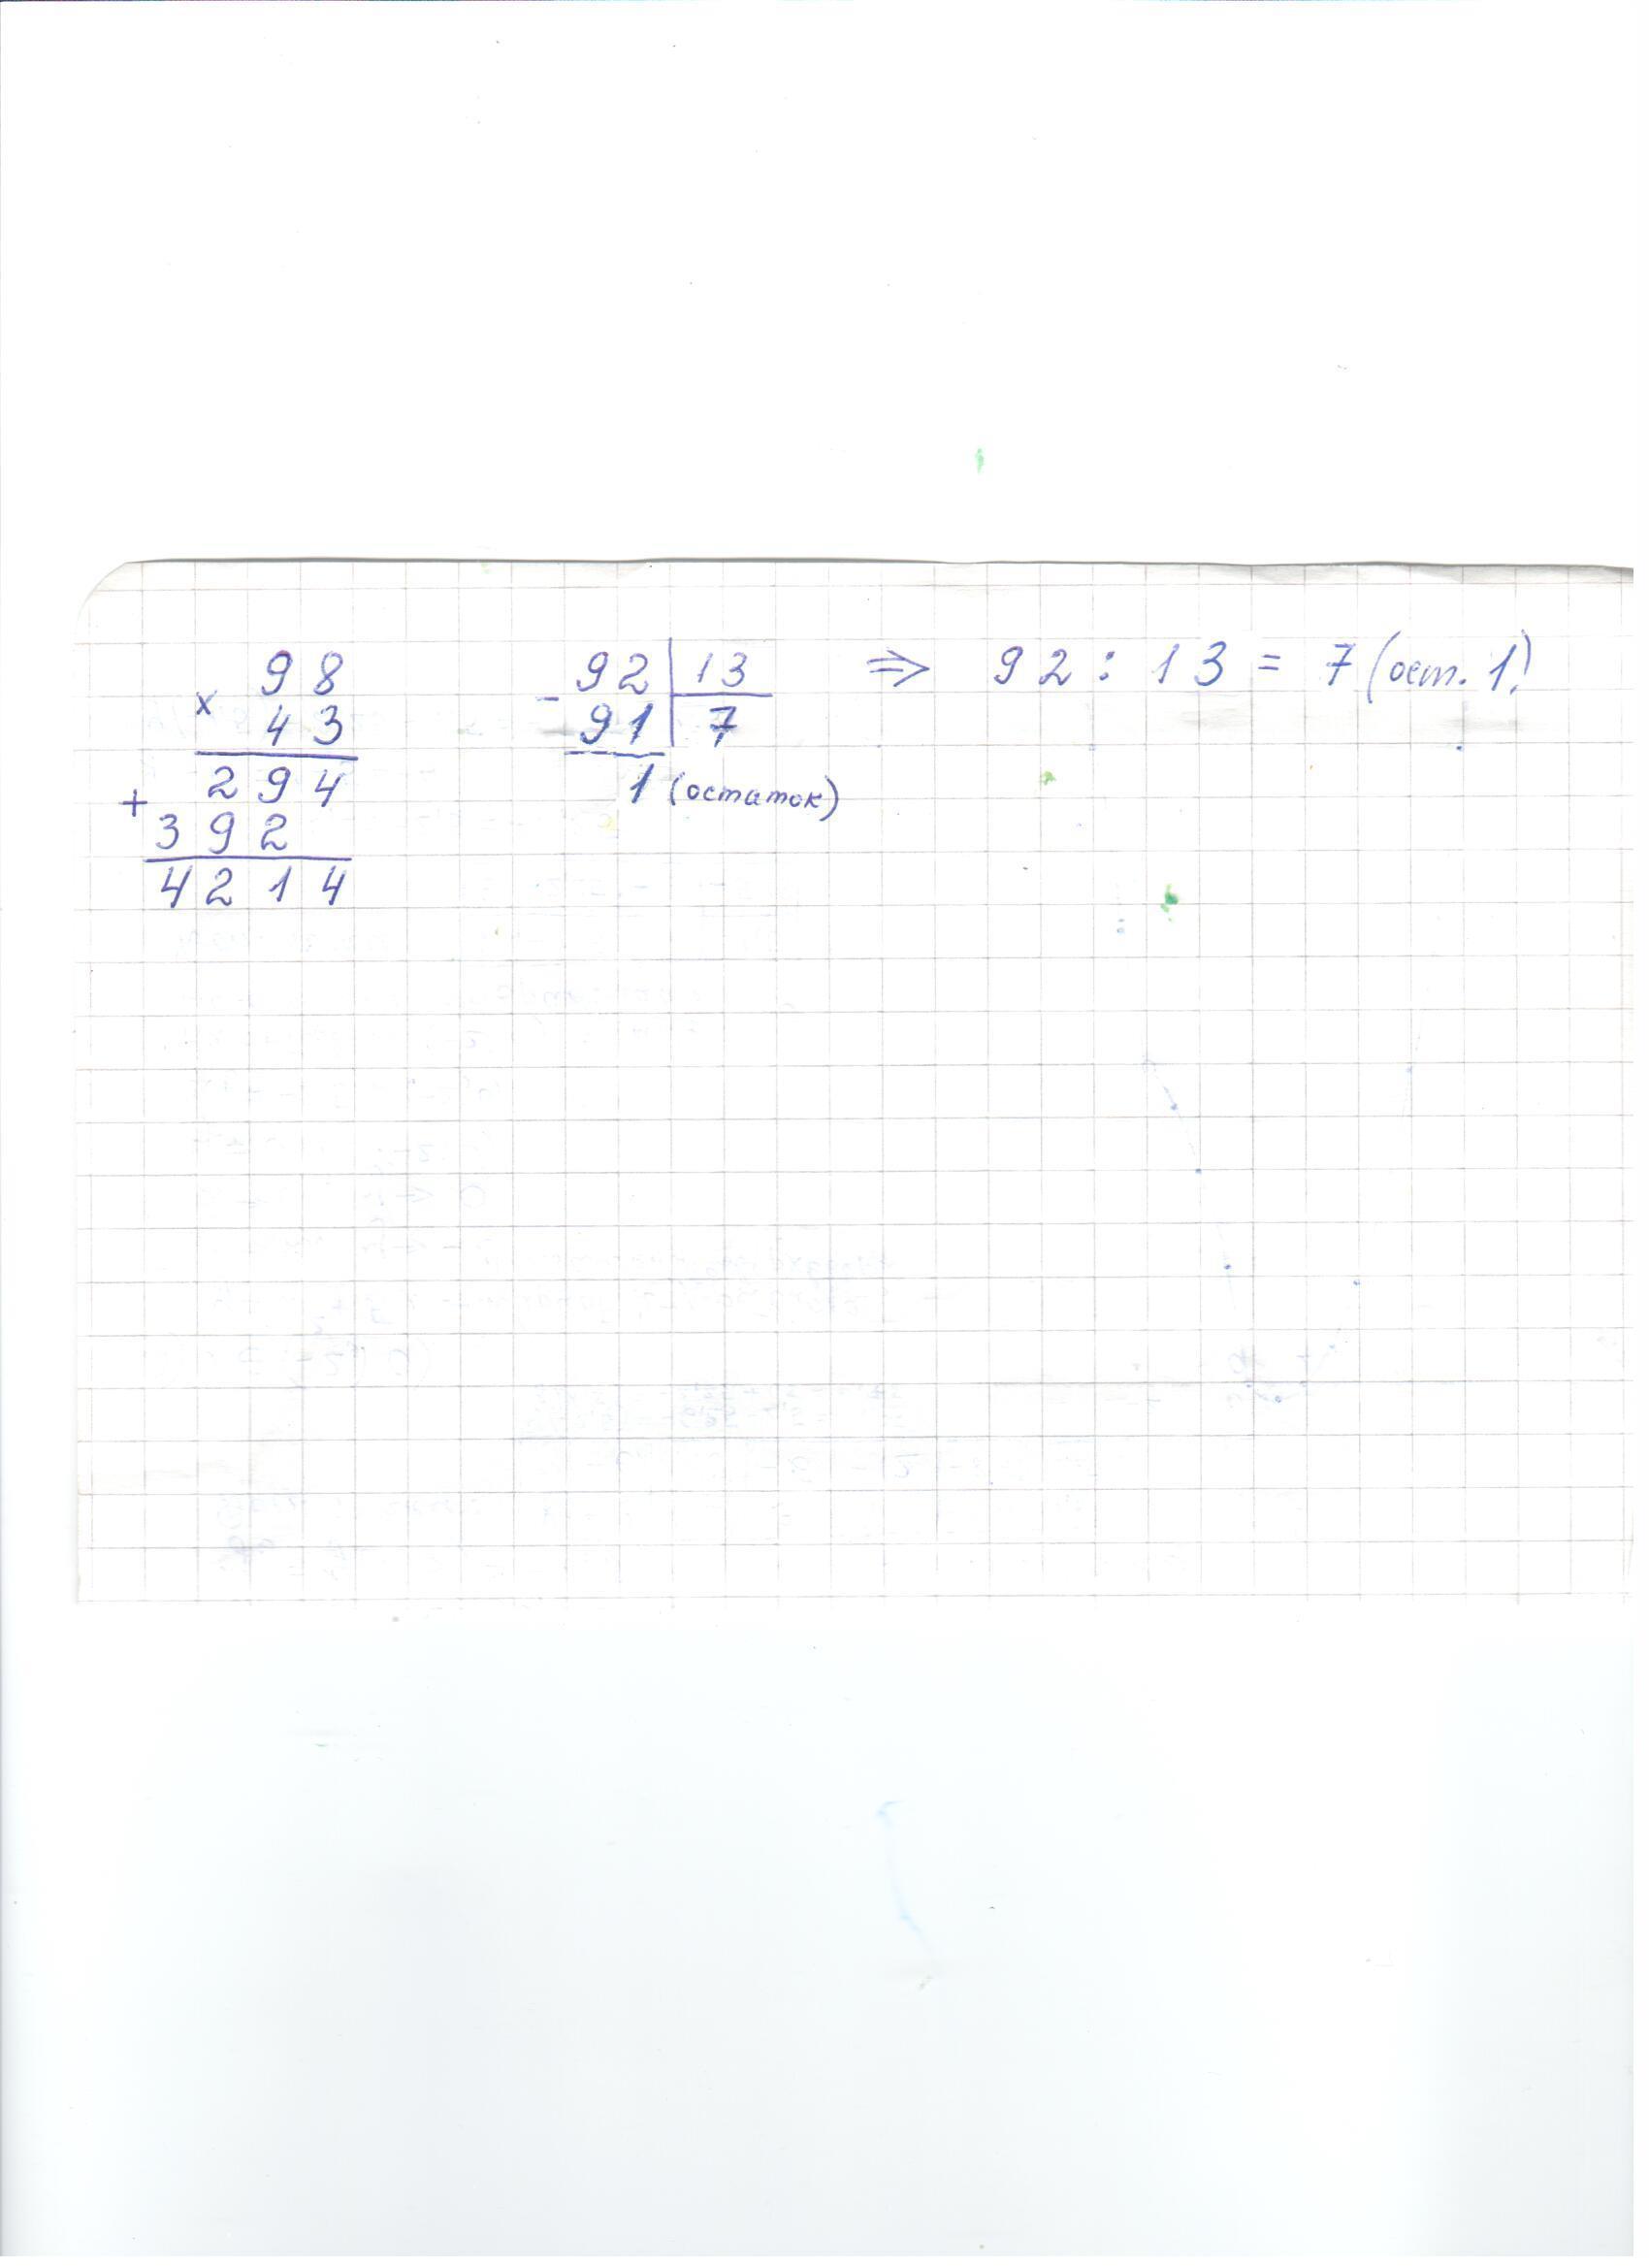 98
× 43
294
+ 392
4214
- 92 | 13
91 | 7
1 (остаток)
⇒ 92 : 13 = 7 (ост. 1)